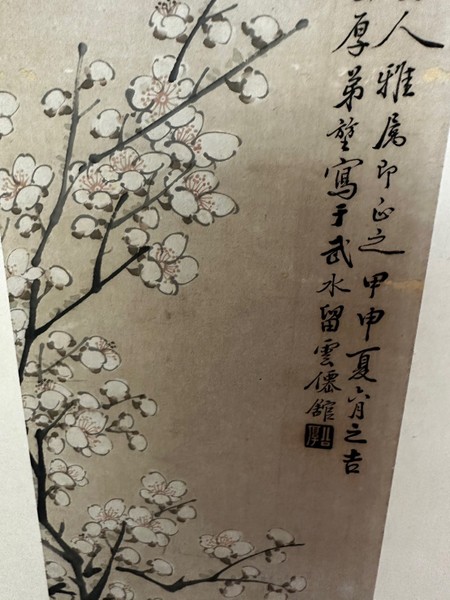 人雅属即正之甲申夏六月之吉
厚弟堃寫于武水留雲僊館